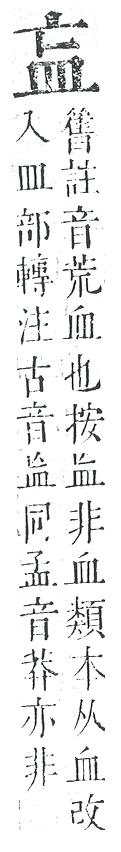 㿽
舊註音荒血也按㿽非血類本从血改
入皿部轉注古音㿽同孟音莽亦非